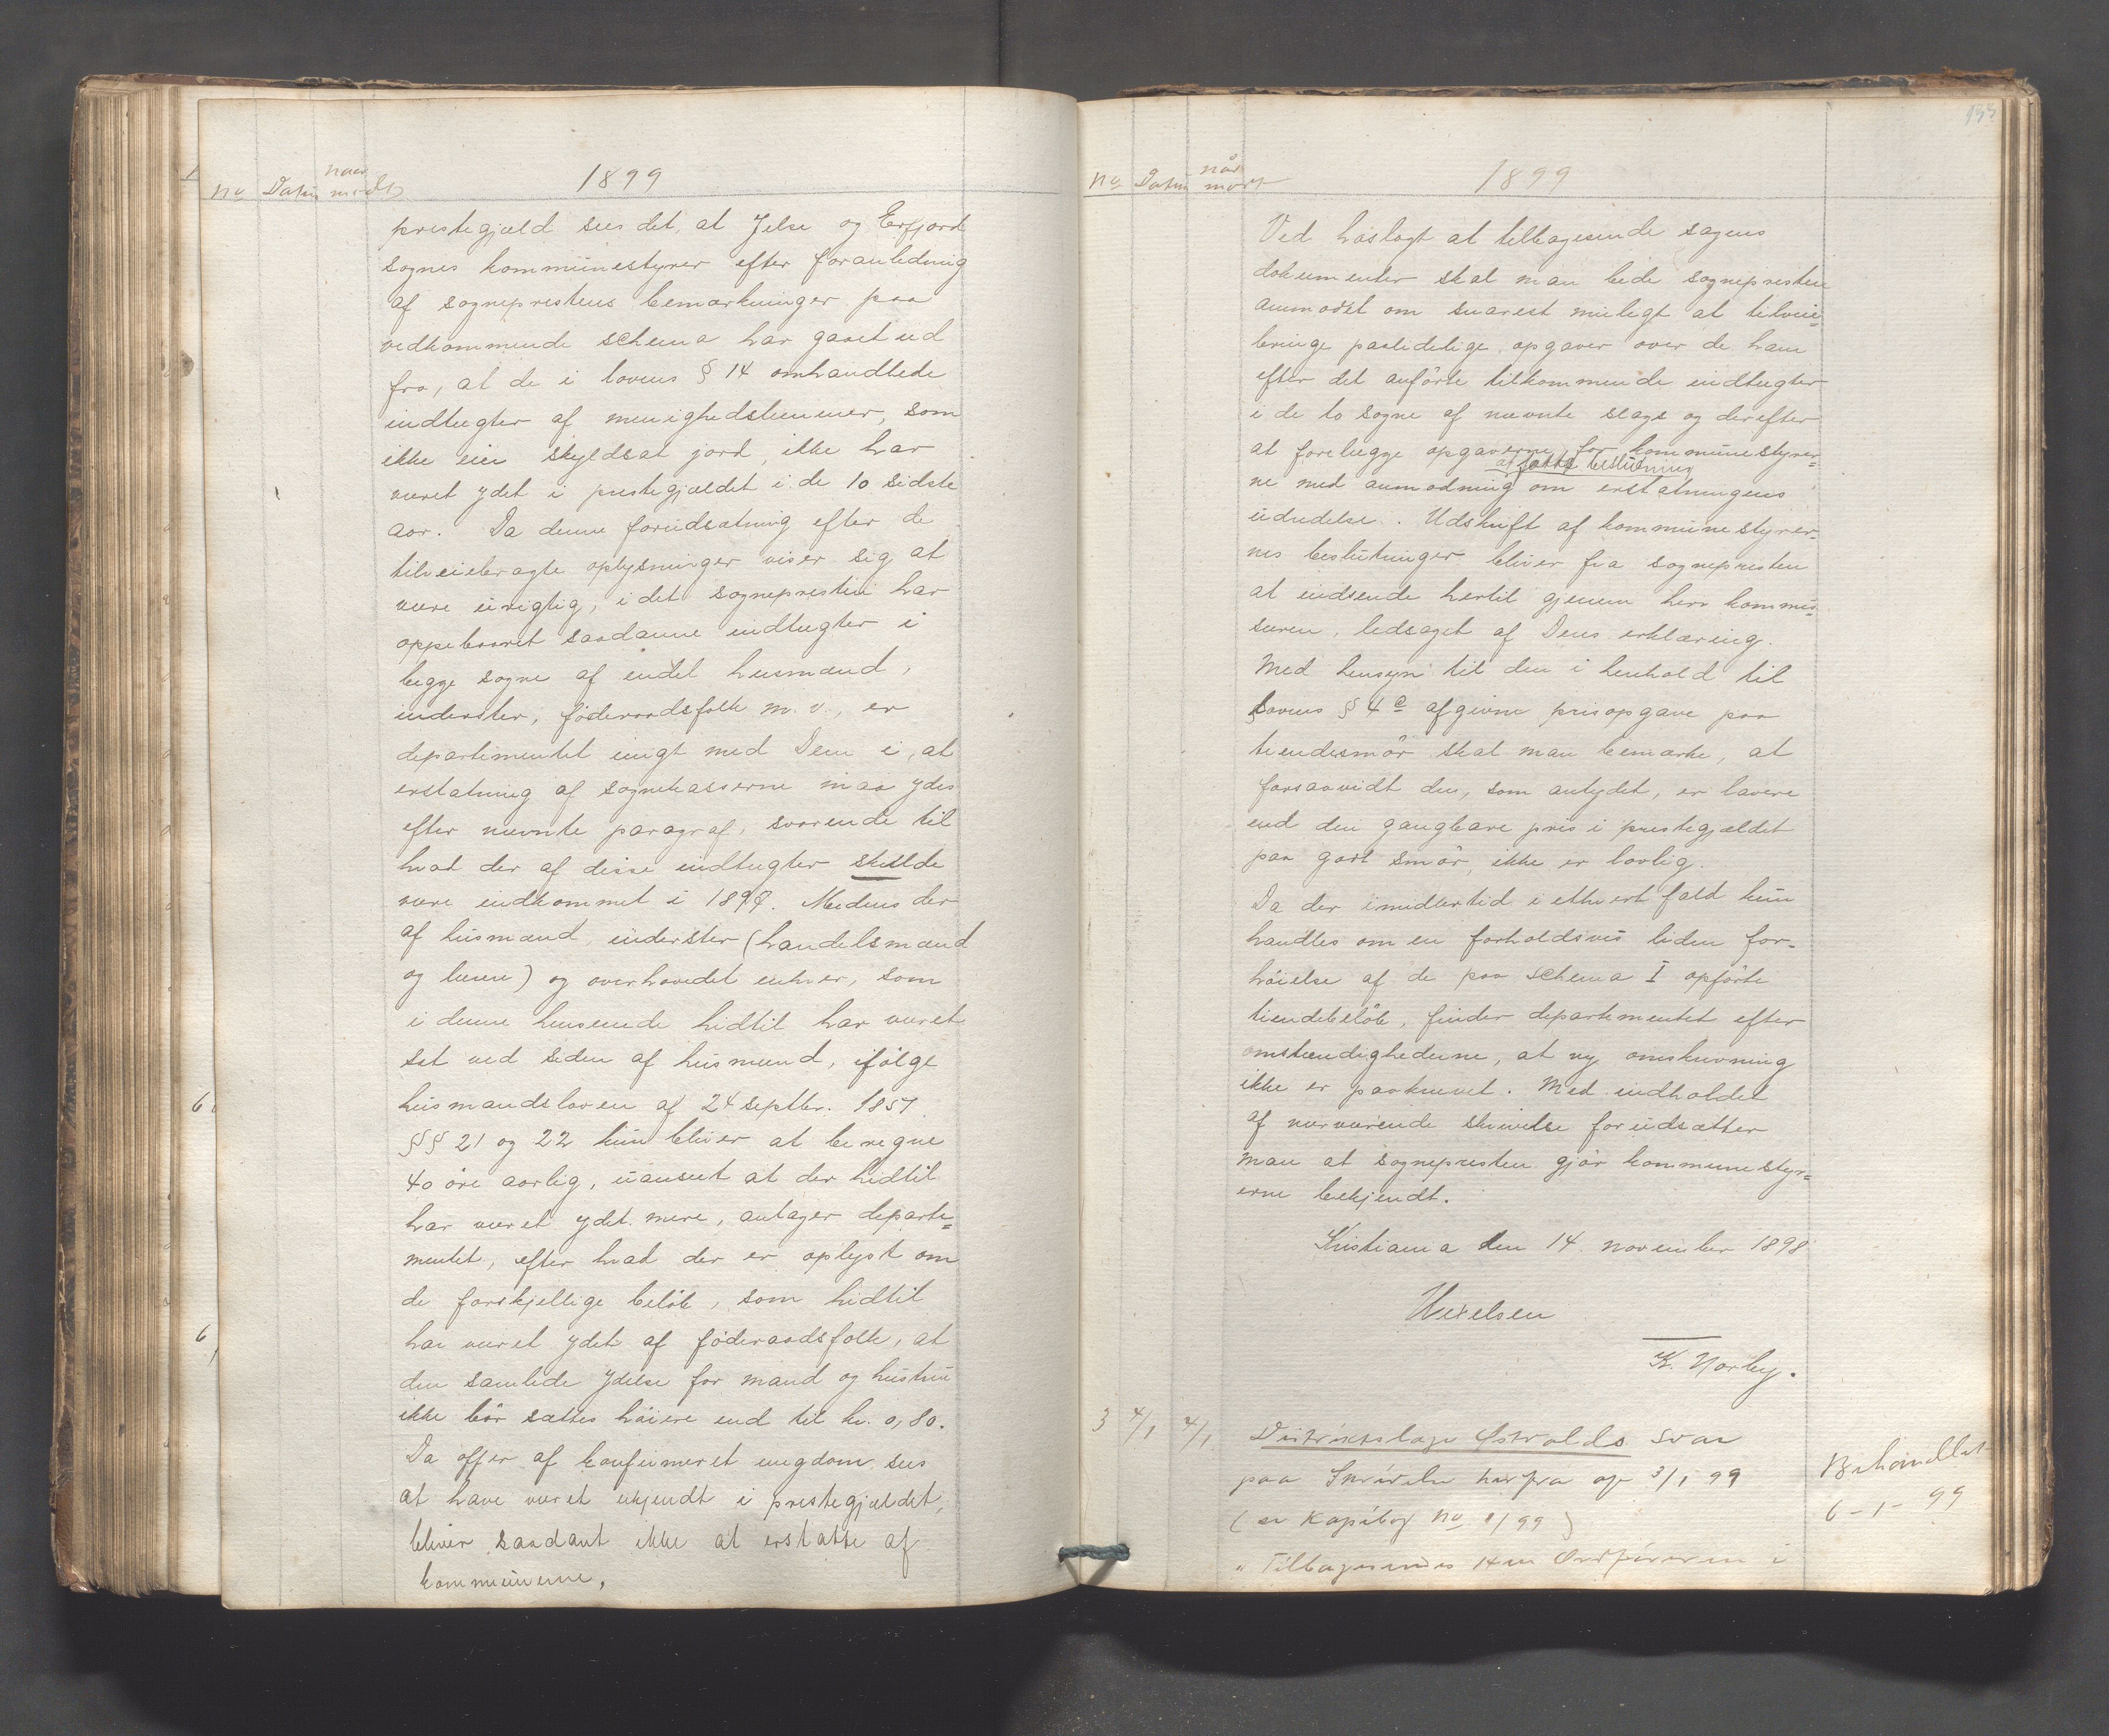 No Datum naar modt 1899
prestegjæld sees det, at Jelse og Erfjord
sognes kommunestyrer efter foranledning
af sogneprestens bemærkninger paa
vedkommende schema har gaaet ud
fra, at de i lovens § 14 omhandlede
indtægter af menighedslemmer, som
ikke eier skyldsat jord, ikke har
været ydet i prestegjældet i de 10 sidste
aar. Da denne forudsætning efter de
tilveiebragte oplysninger viser sig at
være urigtig, idet sognepresten har
oppebaaret saadanne indtægter i
begge sogne af endel husmænd,
inderster, föderaadsfolk m. v., er
departementet enigt med Dem i, at
erstatning af sognekasserne maa ydes
efter nævnte paragraf, svarende til
hvad der af disse indtægter skulde
være indkommet i 1898. Medens der
af husmænd, inderster (handelsmænd
og lærere) og overhovedet enhver, som
i denne henseende hidtil har været
sat ved siden af husmænd, ifölge
husmandsloven af 24 septbr. 1851
§§ 21 og 22 kun bliver at beregne
40 öre aarlig, uanseet at der hidtil
har været ydet mere, antager departe=
mentet, efter hvad der er oplyst om
de forskjellige belöb, som hidtil
har været ydet af föderaadsfolk, at
den samlede ydelse for mand og hustru
ikke bör sættes höiere end til kr. 0,80.
Da offer af konfirmeret ungdom sees
at have været ukjendt i prestegjældet,
bliver saadant ikke at erstatte af
kommunerne.
No Datum når modt 1899
Ved hoslagt at tilbagesende sagens
dokumenter skal man bede sognepresten
anmodet om snarest muligt at tilveie=
bringe paalidelige opgaver over de ham
efter det anförte tilkommende indtægter
i de to sogne af nævnte slags og derefter
at forelægge opgaverne for kommunestyrer=
at fatte beslutning
ne med anmodning om erstatningens
udredelse. Udskrift af kommunestyrer=
nes beslutninger bliver fra sognepresten
at indsende hertil gjennem herr kommis=
særen, ledsaget af Deres erklæring.
Med hensyn til den i henhold til
Lovens § 4 c afgivne prisopgave paa
tiendesmör skal man bemærke, at
forsaavidt den, som antydet, er lavere
end den gangbare pris i prestegjældet
paa godt smör, ikke er lovlig.
Da der imidlertid i ethvert fald kun
handles om en forholdsvis liden for=
höielse af de paa schema I opförte
tiendebelöb, finder departementet efter
omstændighederne, at ny omskrivning
ikke er paakrævet. Med indholdet
af nærværende skrivelse forudsætter
man at sognepresten gjör kommunestyr=
erne bekjendt.
Kristiania den 14 november 1898
Wexelsen
K. Norby.
3 4/1 4/1 Distriktslæge Østvolds svar
paa Skrivelse herfra af 3/1 99
(se Kopibog No 1/99)
" Tilbagesendes Hr. Ordföreren i
Behandlet
6-1-99